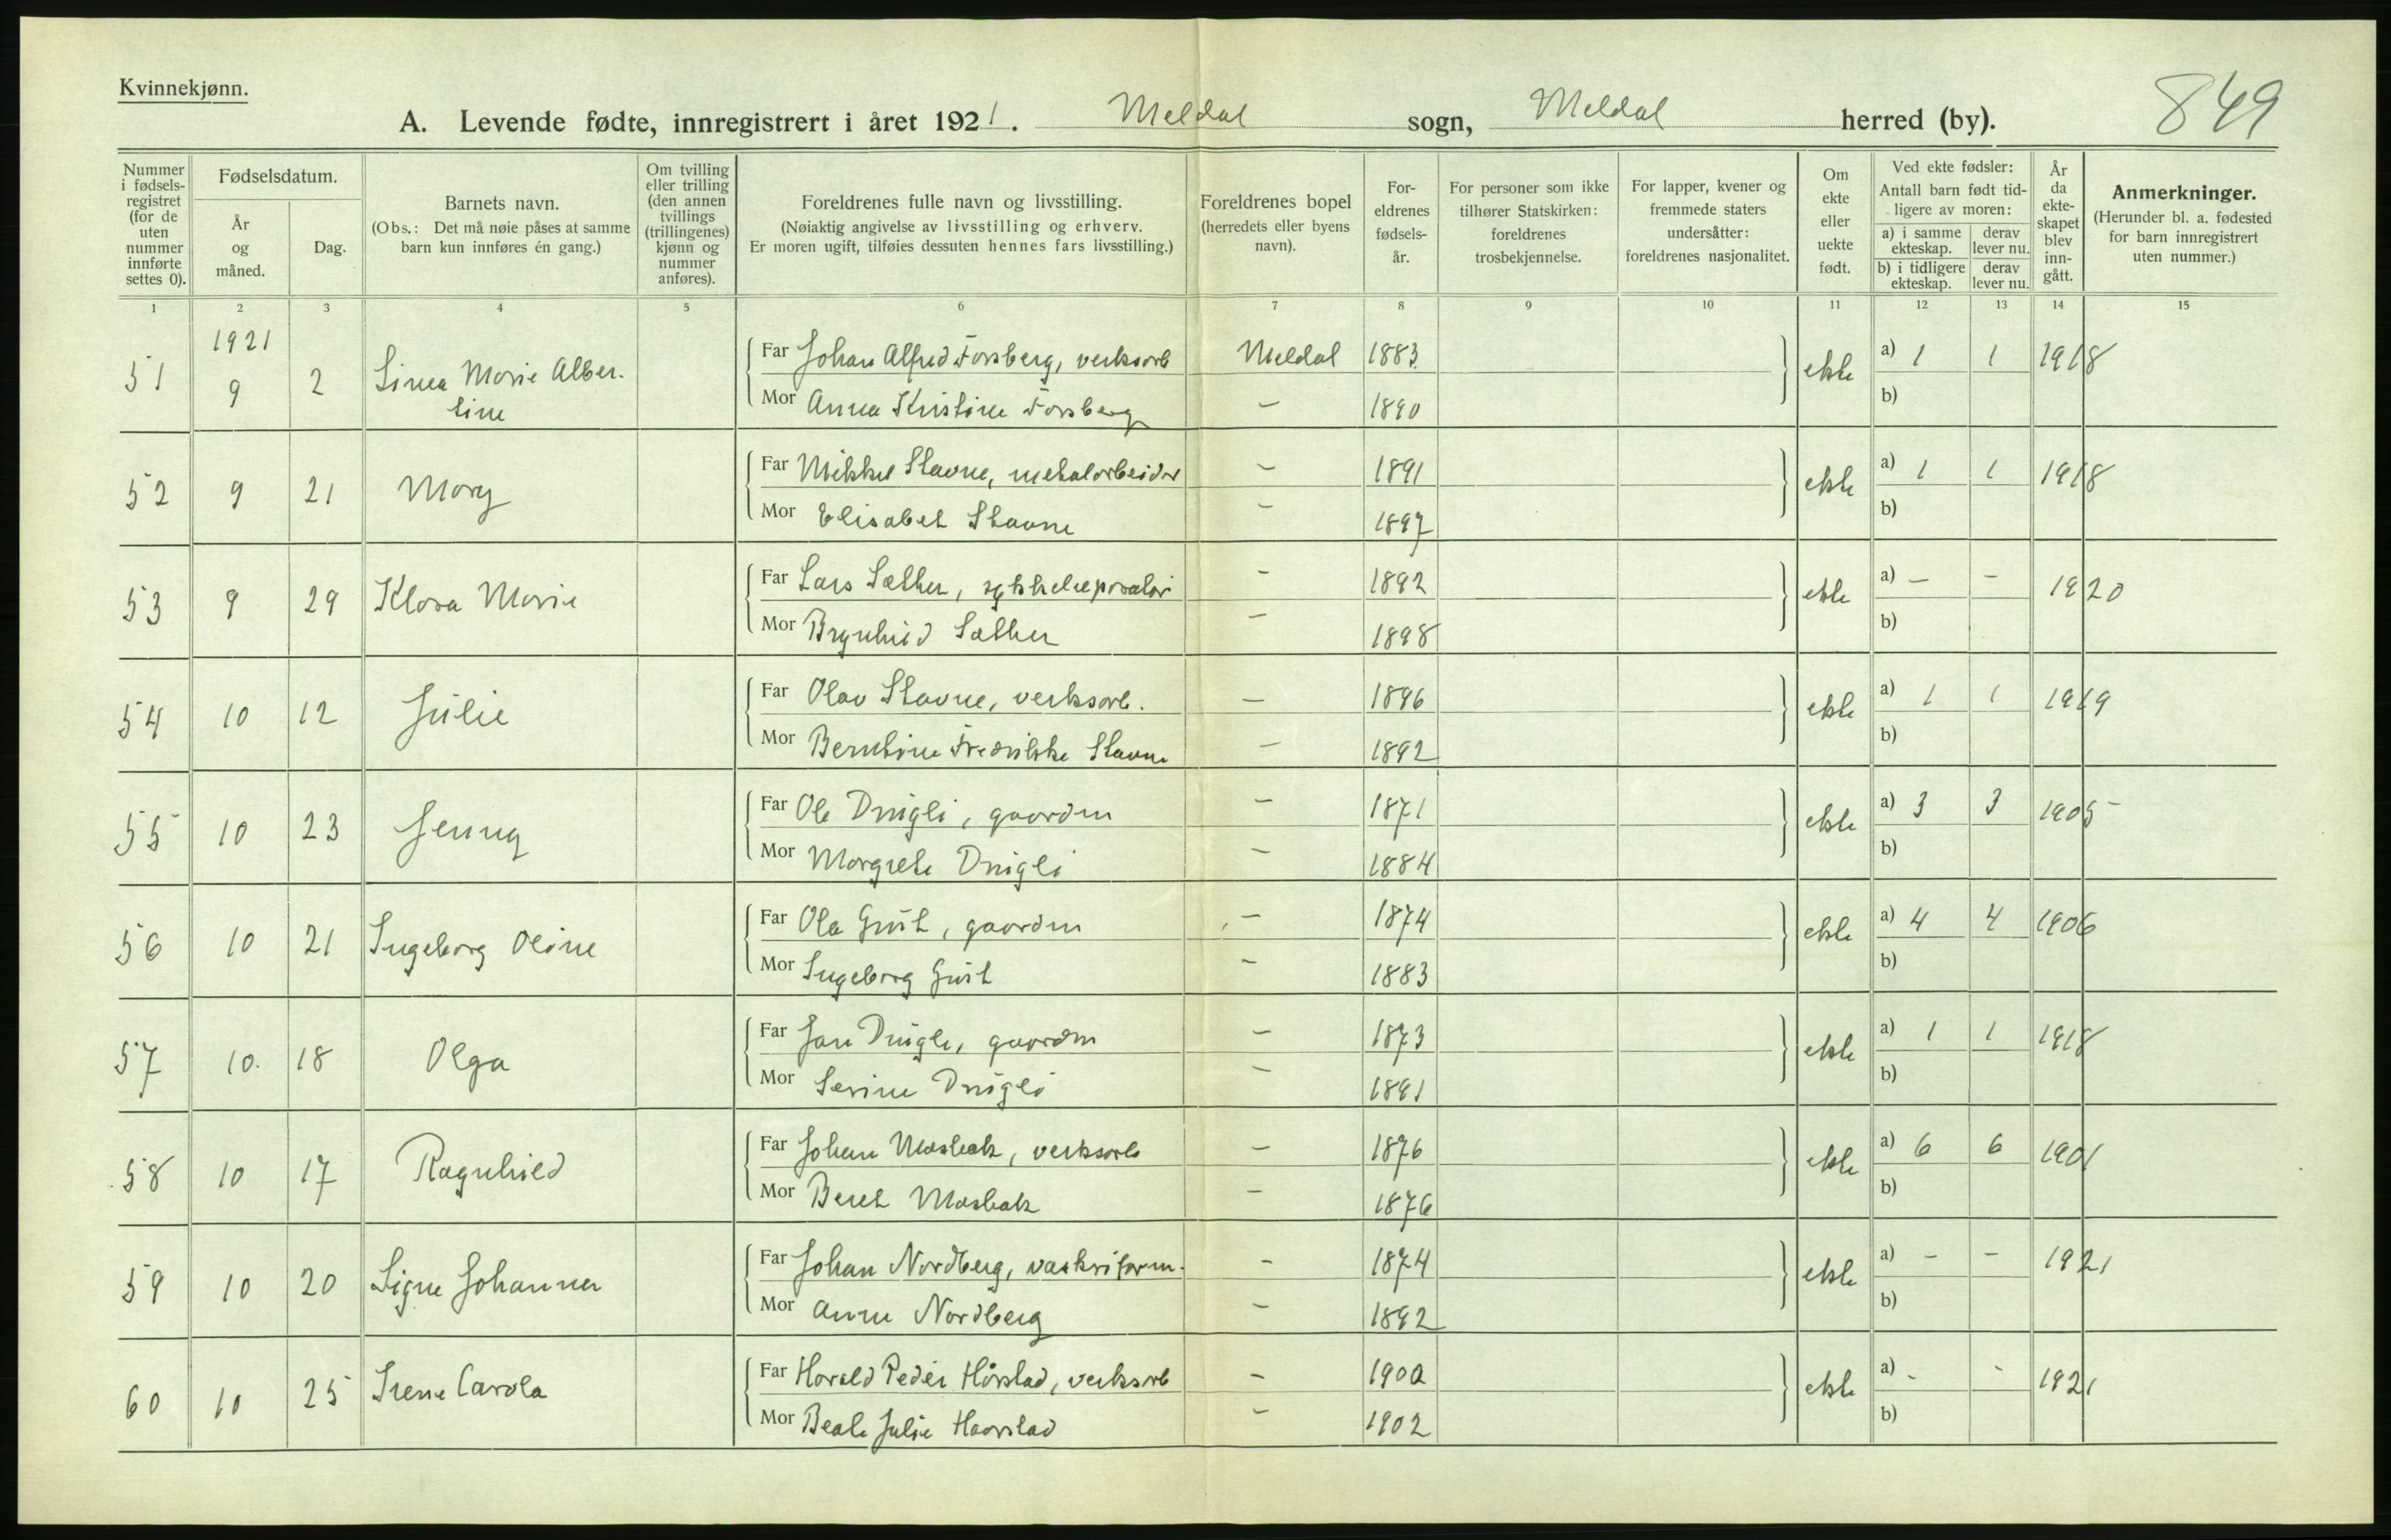 Kvinnekjønn.
849
A. Levende fødte, innregistrert i året 1921. Meldal sogn, Meldal herred (by).
Nummer i fødselsregistret (for de uten nummer innførte settes 0).
Fødselsdatum.
År og måned.
Dag.
Barnets navn.
(Obs.: Det må nøie påses at samme barn kun innføres én gang.)
Om tvilling eller trilling (den annen tvillings (trillingenes) kjønn og nummer anføres).
Foreldrenes fulle navn og livsstilling.
(Nøiaktig angivelse av livsstilling og erhverv.
Er moren ugift, tilføies dessuten hennes fars livsstilling.)
Foreldrenes bopel (herredets eller byens navn).
Foreldrenes fødselsår.
For personer som ikke tilhører Statskirken: foreldrenes trosbekjennelse.
For lapper, kvener og fremmede staters undersåtter: foreldrenes nasjonalitet.
Om ekte eller uekte født.
Ved ekte fødsler:
Antall barn født tidligere av moren:
a) i samme ekteskap. derav lever nu.
b) i tidligere ekteskap. derav lever nu.
År da ekteskapet blev inngått.
Anmerkninger.
(Herunder bl. a. fødested for barn innregistrert uten nummer.)
1 2 3 4 5 6 7 8 9 10 11 12 13 14 15
1921
51 9 2 Linea Marie Alber. Far Johan Alfred Forsberg, verksarb Meldal 1883 ekte a) 1 1 1918
tine Mor Anna Kristine Forsberg — 1890 b)
52 9 21 Mary Far Mikkel Stavne, metalarbeider — 1891 ekte a) 1 1 1918
Mor Elisabet Stavne — 1897 b)
53 9 29 Klara Marie Far Lars Sæther, — 1892 ekte a) — — 1920
Mor Brynhild Sæther — 1898 b)
54 10 12 Julie Far Olav Stavne, verksarb. — 1896 ekte a) 1 1 1919
Mor Berntine Fredrikke Stavne — 1892 b)
55 10 23 Jenny Far Ole Drugli, gaardm — 1871 ekte a) 3 3 1905
Mor Margrete Drugli — 1884 b)
56 10 21 Ingeborg Oline Far Ola Grut, gaardm — 1874 ekte a) 4 4 1906
Mor Ingeborg Grut — 1883 b)
57 10. 18 Olga Far Jon Drugli, gaardm — 1873 ekte a) 1 1 1918
Mor Serine Drugli — 1891 b)
58 10 17 Ragnhild Far Johan Mosbak, verksarb — 1876 ekte a) 6 6 1901
Mor Beret Mosbak — 1876 b)
59 10 20 Signe Johanna Far Johan Nordberg, vaskriform. — 1874 ekte a) — — 1921
Mor Anne Nordberg — 1892 b)
60 10 25 Irene Carola Far Harald Peder Hårstad, verksarb — 1900 ekte a) - - 1921
Mor Beate Julie Haarstad — 1902 b)